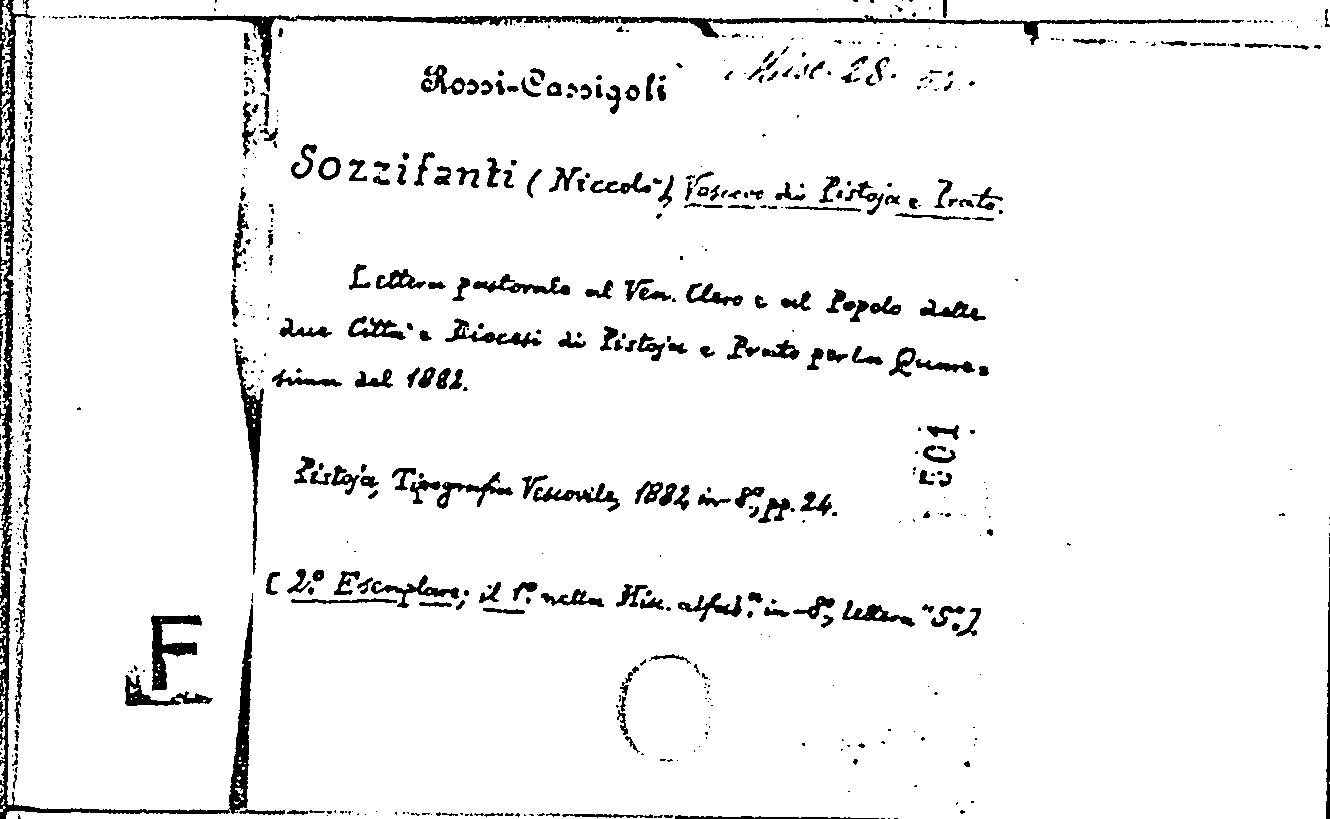 Rossi-Cassigoli Misc. 28.
Sozzifanti (Niccolò) Vescovo di Pistoja e Prato.
Lettera pastorale al Ven. Clero e al Popolo delle
due Città e Diocesi di Pistoja e Prato per la Quare=
sima del 1882.
Pistoja, Tipografia Vescovile, 1882, in-8°, pp. 24.
[2.° Esemplare; il 1.° nella Misc. alfab.ª in-8°, lettera "S".].
F